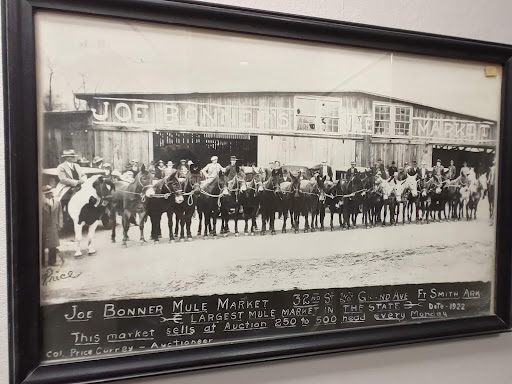 JOE BONNER'S MULE MARKET
Price
JOE BONNER MULE MARKET 32ND ST AND GRAND AVE FT SMITH ARK
LARGEST MULE MARKET IN THE STATE DATE-1922
This market sells at Auction 250 to 500 head every Monday
Col. Price Curry - Auctioneer